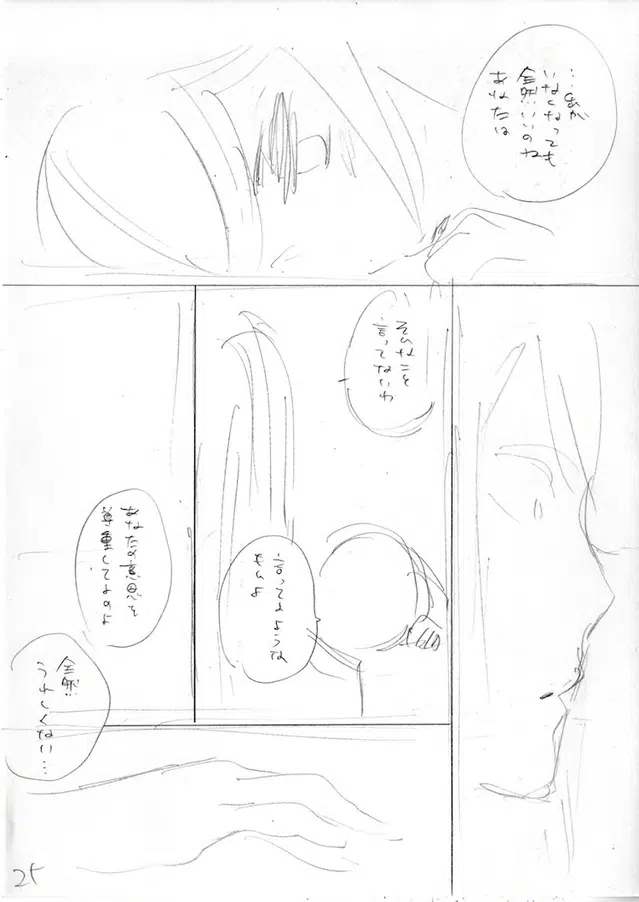 …私が
いなくなっても
全然いいのね
あなたは
そんなこと
言ってないわ
言ってるような
もんよ
あなたの意思を
尊重してるのよ
全然
うれしくない…
25